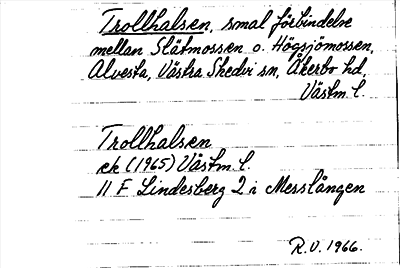 Trollhalsen, smal förbindelse
mellan Slätmossen o. Högsjömossen,
Alvesta, Västra Skedvi sn, Åkerbo hd,
Västm. l.
Trollhalsen
ek (1965) Västm. l.
11 F Lindesberg 2 i Messlången
R.U. 1966.